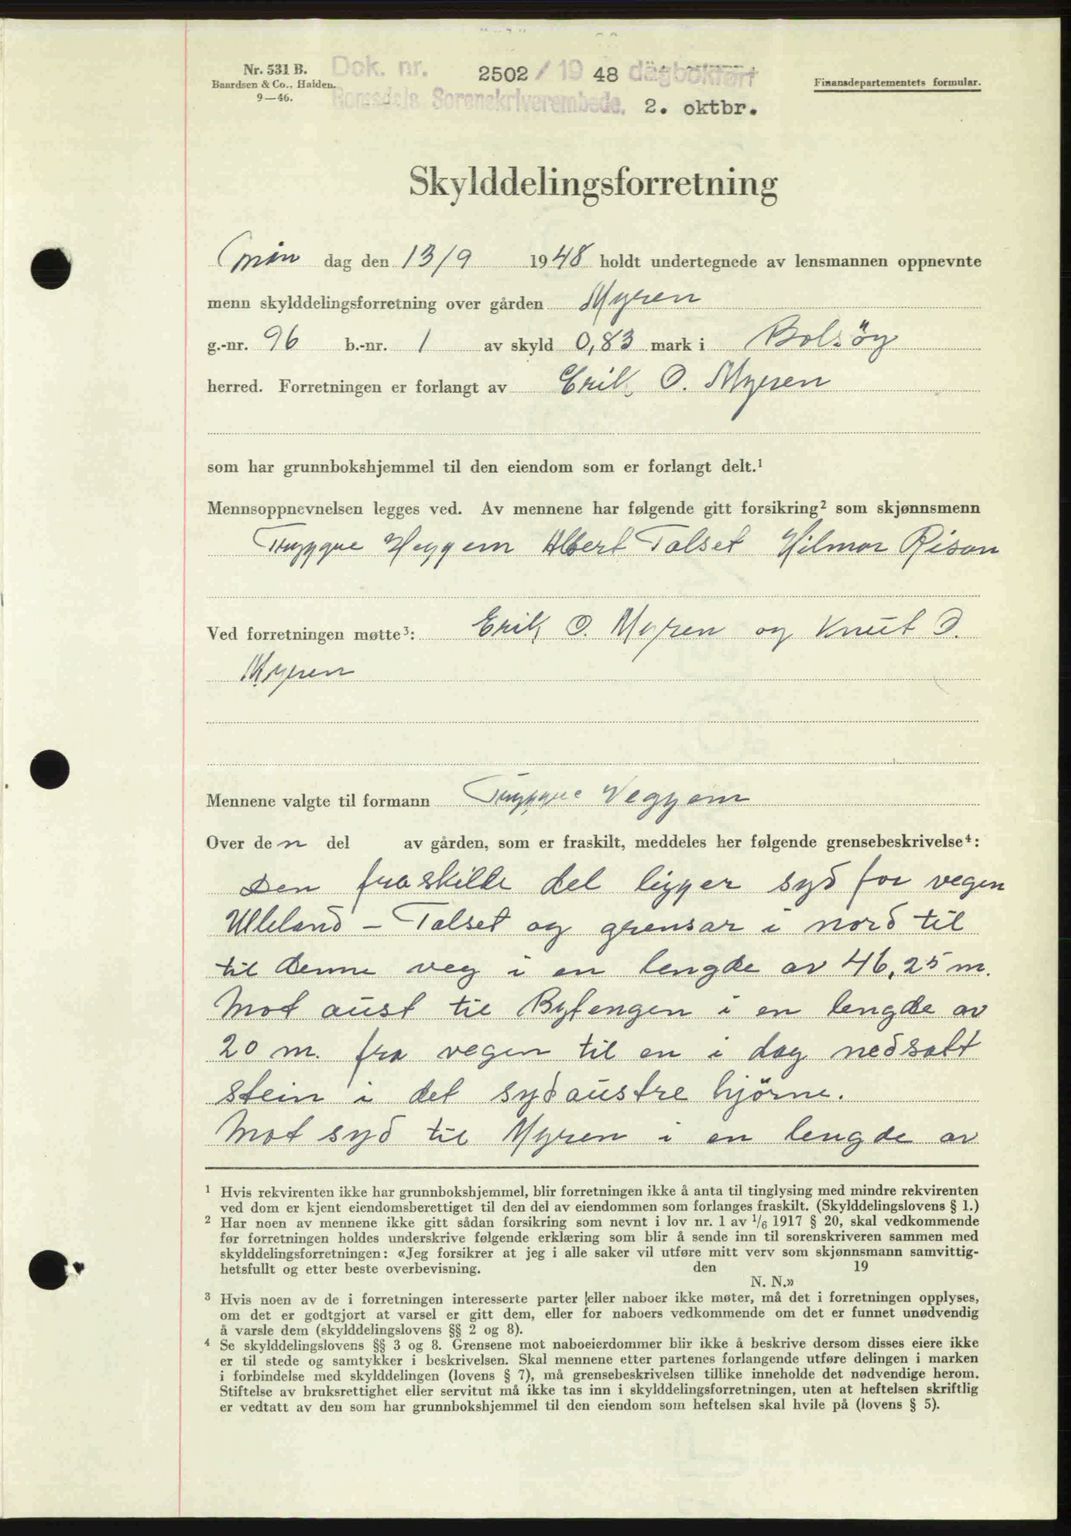 Nr. 531 B.
Baardsen & Co., Halden.
9—46.
Dok. nr. 2502 / 19 48 dagbokført
Romsdals Sorenskriverembede. 2. oktbr.
Finansdepartementets formular.
Skylddelingsforretning
Mån dag den 13/9 1948 holdt undertegnede av lensmannen oppnevnte
menn skylddelingsforretning over gården Myren
g.-nr. 96 b.-nr. 1 av skyld 0,83 mark i Bolsöy
herred. Forretningen er forlangt av Erik O. Myren
som har grunnbokshjemmel til den eiendom som er forlangt delt.¹
Mennsoppnevnelsen legges ved. Av mennene har følgende gitt forsikring² som skjønnsmenn
Tryggve Heggem Albert Talset Hilmar Risan
Ved forretningen møtte³: Erik O. Myren og Knut O.
Myren
Mennene valgte til formann Tryggve Heggem
Over den del av gården, som er fraskilt, meddeles her følgende grensebeskrivelse⁴:
Den fraskilde del ligger syd for vegen
Ulleland - Talset og grensar i nord til
til denne veg i en lengde av 46,25 m.
Mot aust til Bytengen i en lengde av
20 m. fra vegen til en i dag nedsatt
stein i det sydaustre hjörne.
Mot syd til Myren i en lengde av
¹ Hvis rekvirenten ikke har grunnbokshjemmel, blir forretningen ikke å anta til tinglysing med mindre rekvirenten
ved dom er kjent eiendomsberettiget til den del av eiendommen som forlanges fraskilt. (Skylddelingslovens § 1.)
² Har noen av mennene ikke gitt sådan forsikring som nevnt i lov nr. 1 av 1/6 1917 § 20, skal vedkommende
før forretningen holdes underskrive følgende erklæring som blir å sende inn til sorenskriveren sammen med
skylddelingsforretningen: «Jeg forsikrer at jeg i alle saker vil utføre mitt verv som skjønnsmann samvittig-
hetsfullt og etter beste overbevisning. den 19
N. N.»
³ Hvis noen av de i forretningen interesserte parter eller naboer ikke møter, må det i forretningen opplyses,
om det er godtgjort at varsel er gitt dem, eller for naboers vedkommende om det er funnet unødvendig
å varsle dem (skylddelingslovens §§ 2 og 8).
⁴ Se skylddelingslovens §§ 3 og 8. Grensene mot naboeierdommer blir ikke å beskrive dersom disses eiere ikke
er til stede og samtykker i beskrivelsen. Skal mennene etter partenes forlangende utføre delingen i marken
i forbindelse med skylddelingen (lovens § 7), må grensebeskrivelsen tillike inneholde det nødvendige herom.
Stiftelse av bruksrettighet eller servitut må ikke tas inn i skylddelingsforretningen, uten at heftelsen skriftlig
er vedtatt av den som har grunnbokshjemmel til den eiendom som heftelsen skal hvile på (lovens § 5).